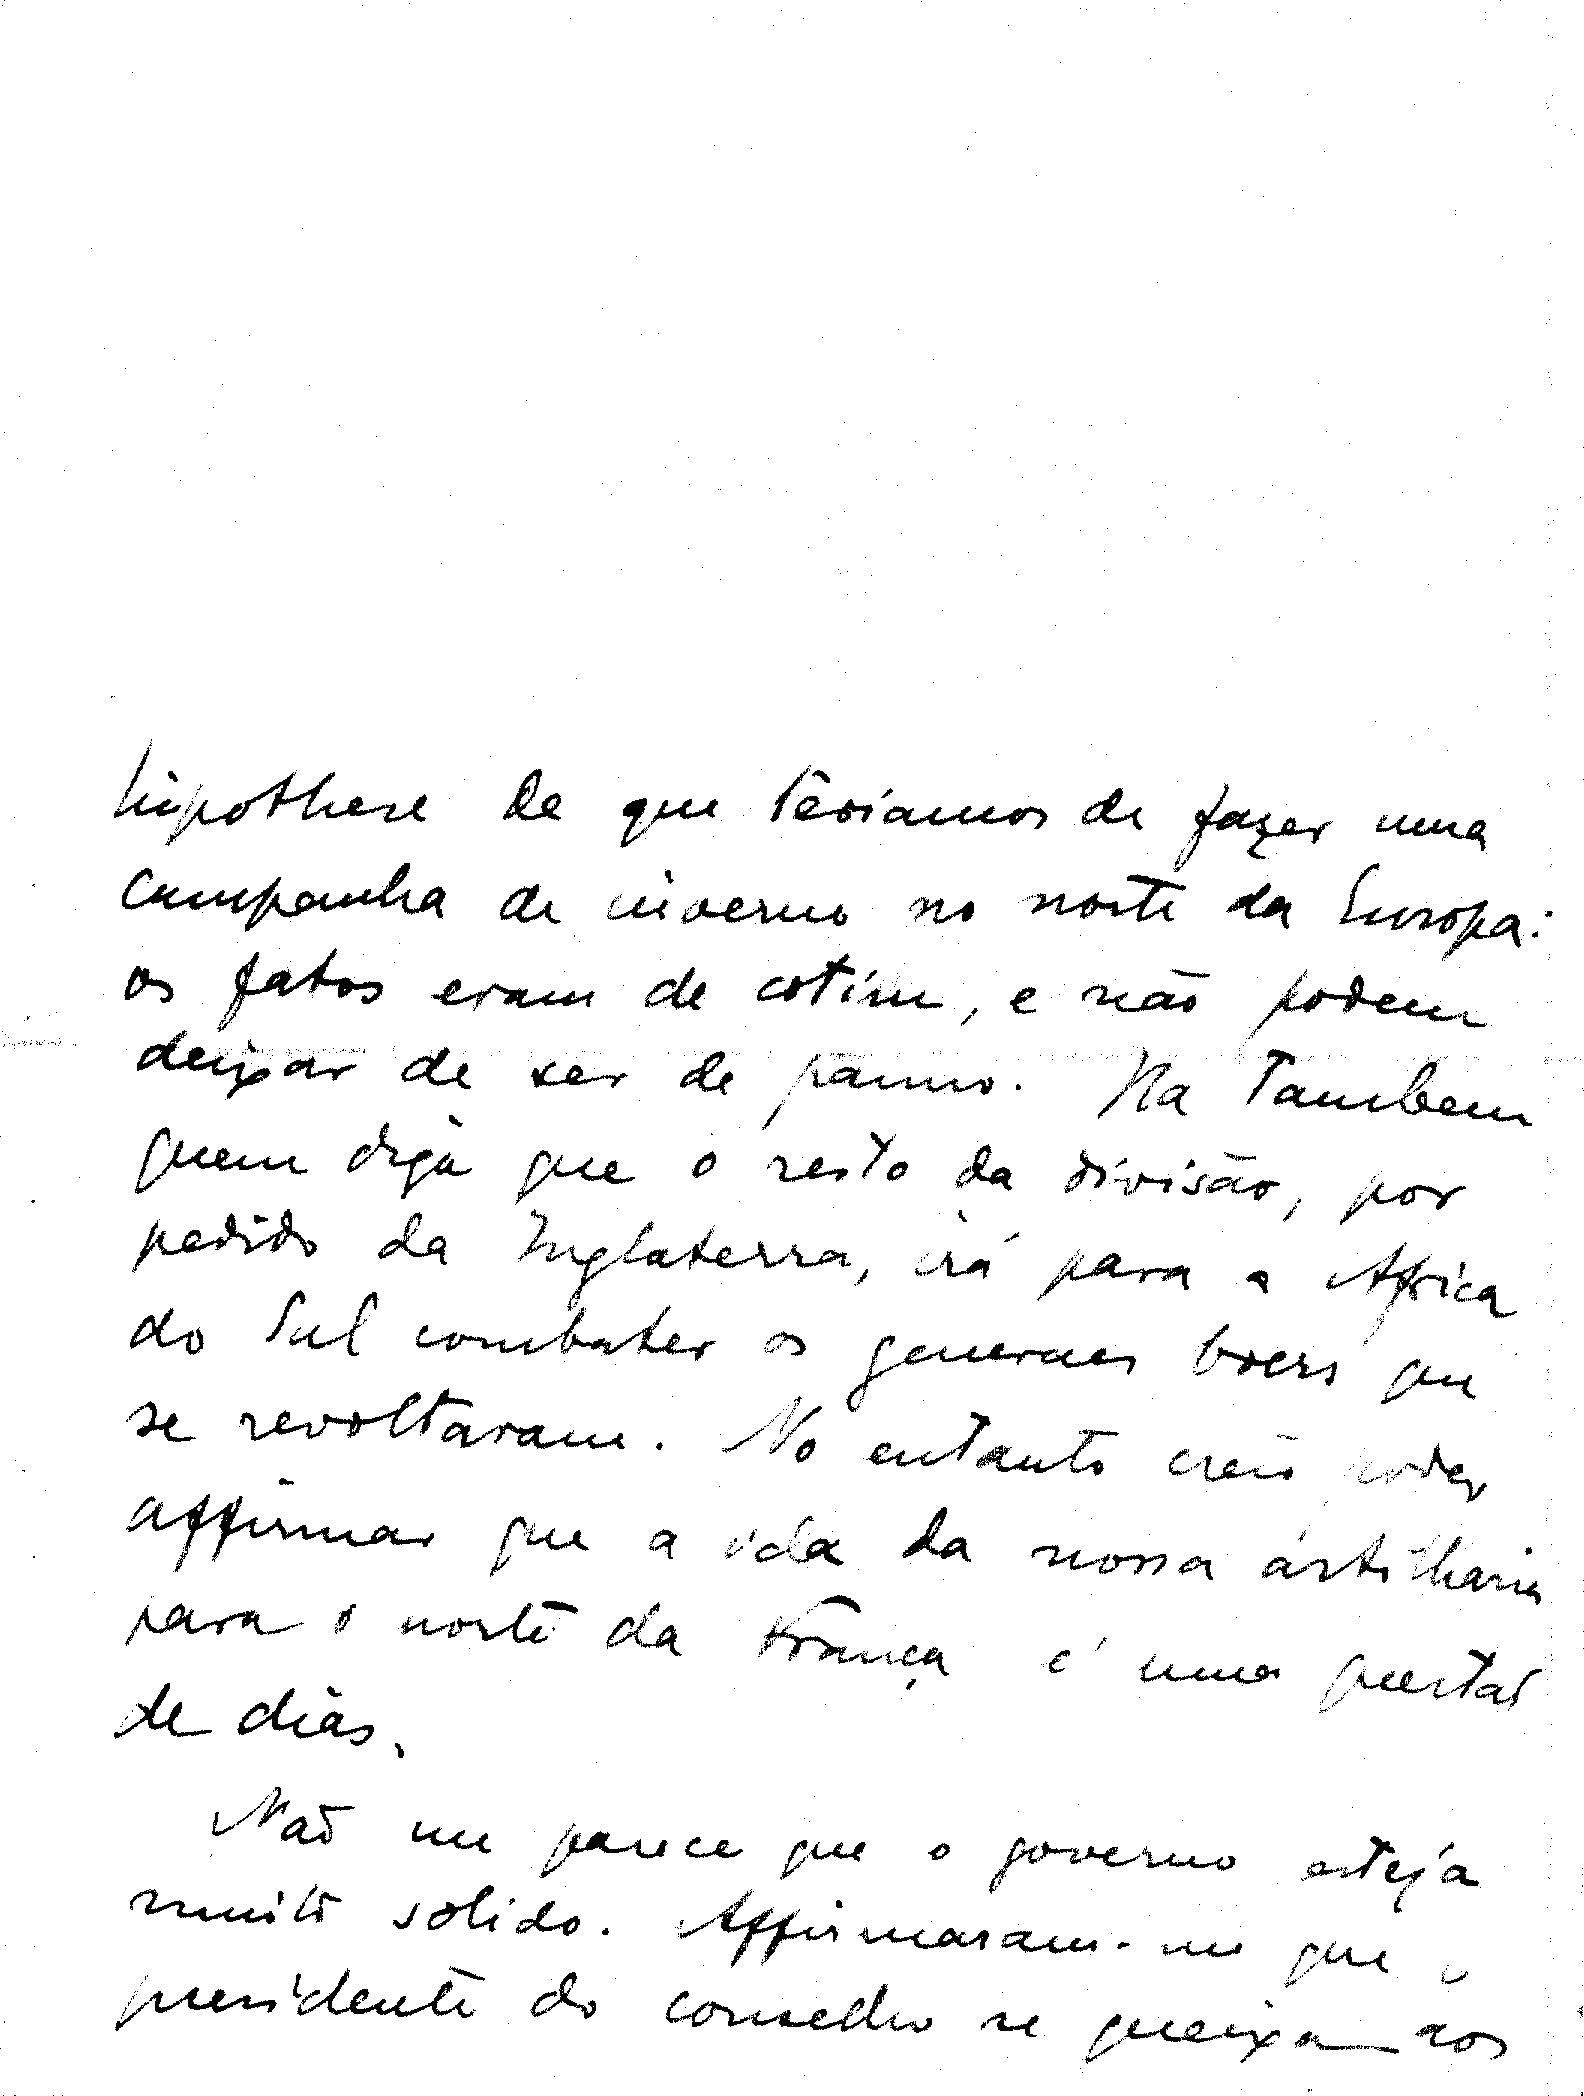 hipothese de que teriamos de fazer uma
campanha de inverno no norte da Europa:
os fatos eram de cotim, e não podem
deixar de ser de panno. Ha tambem
quem diga que o resto da divisão, por
pedido da Inglaterra, irá para a Africa
do Sul combater os generaes boers que
se revoltaram. No entanto creio poder
affirmar que a ida da nossa artilharia
para o norte da França é uma questão
de dias.
Não me parece que o governo esteja
muito solido. Affirmaram-me que o
presidente do conselho se queixa aos